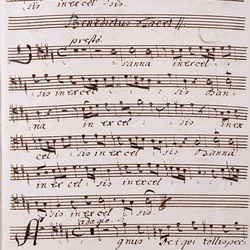 in excel : sis
Benedictus Tacet
presto
sanna in excel
sis in excel : sis o San :
na in excel : sis in ex
cel : sis o Sanna
in excel sis
sis in excel : sis
adagio
Agnus Dei qui tollis pec